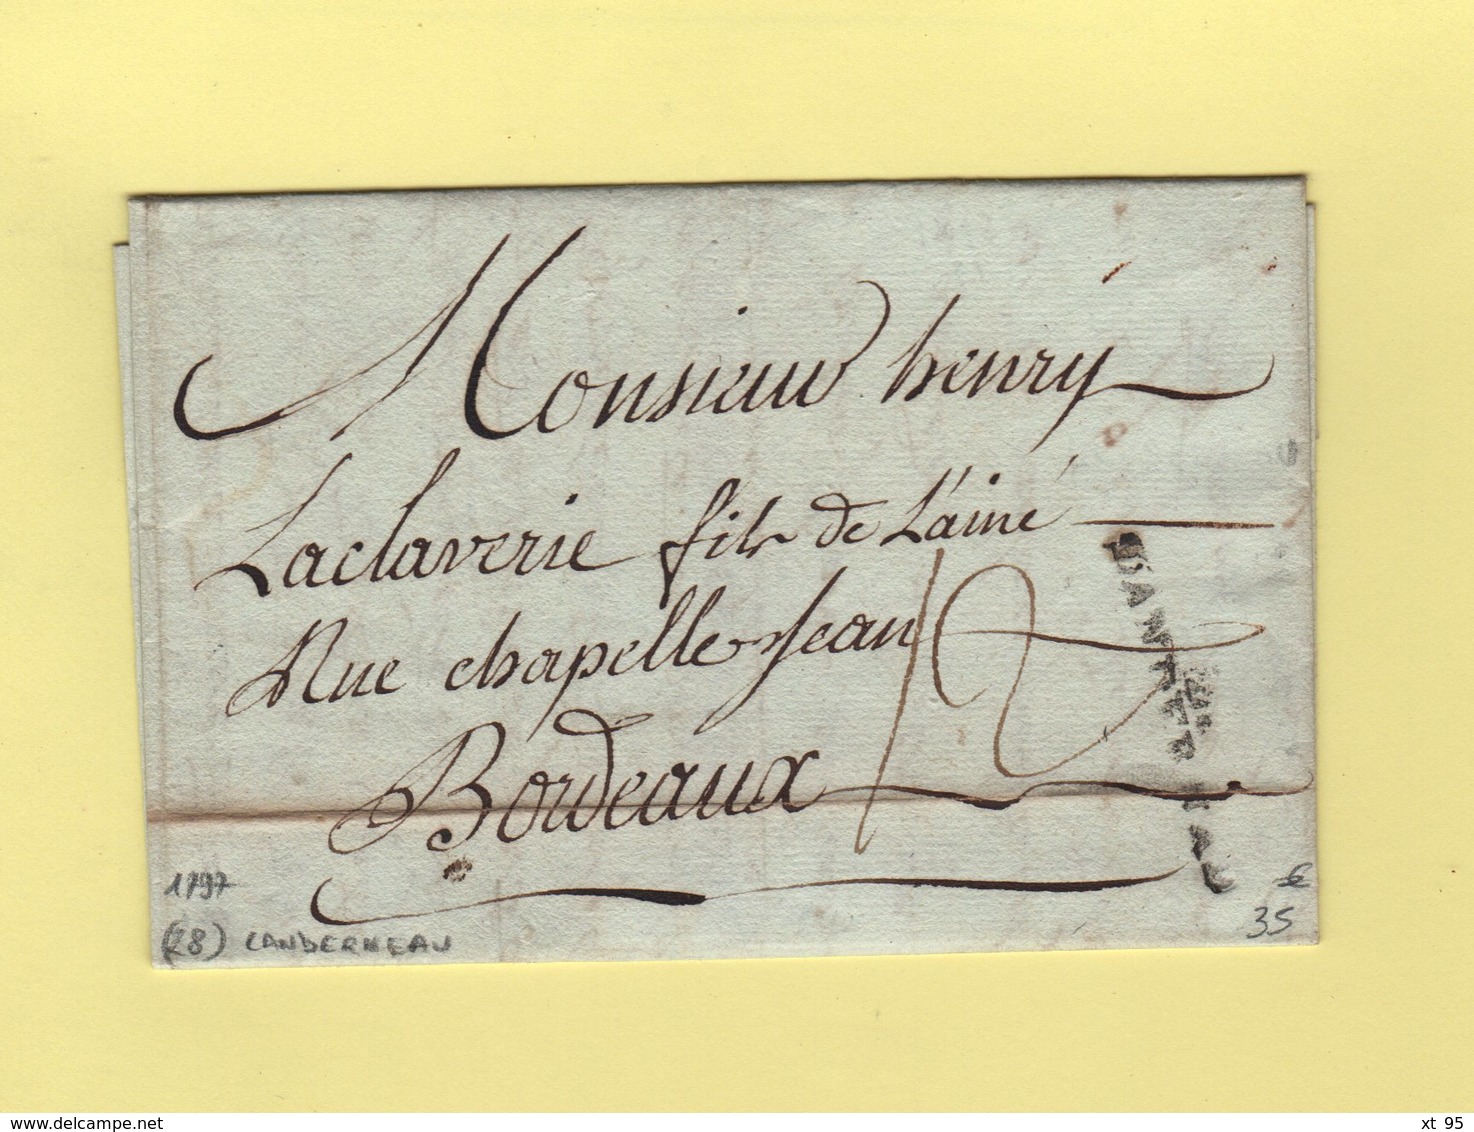 Monsieur henry
Laclaverie fils de L'ainé
Rue chapelle S^t Jean
Bordeaux
12
1797
(28) LANDERNEAU
€
35
xt 95